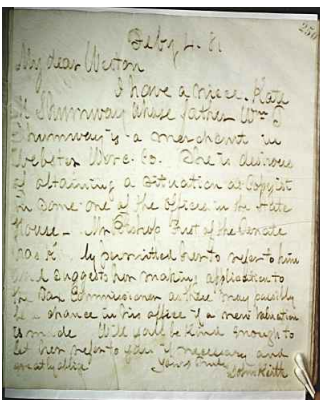 250
Feby 4. 81
My dear Weston
I have a niece. Kate
Shumway whose father Wm
Shumway is a merchant in
Webster Worc. Co. She is desirous
of obtaining a situation as Copyist
in some one of the offices in the State
House - Mr Bishop Prest of the Senate
has ly permitted her to refer to him
and suggests her making application to
the Tax Commissioner as there may possibly
be a chance in his office if a new valuation
is made Will you be kind enough to
let her refer to you if necessary and
greatly oblige Yours truly
Keith